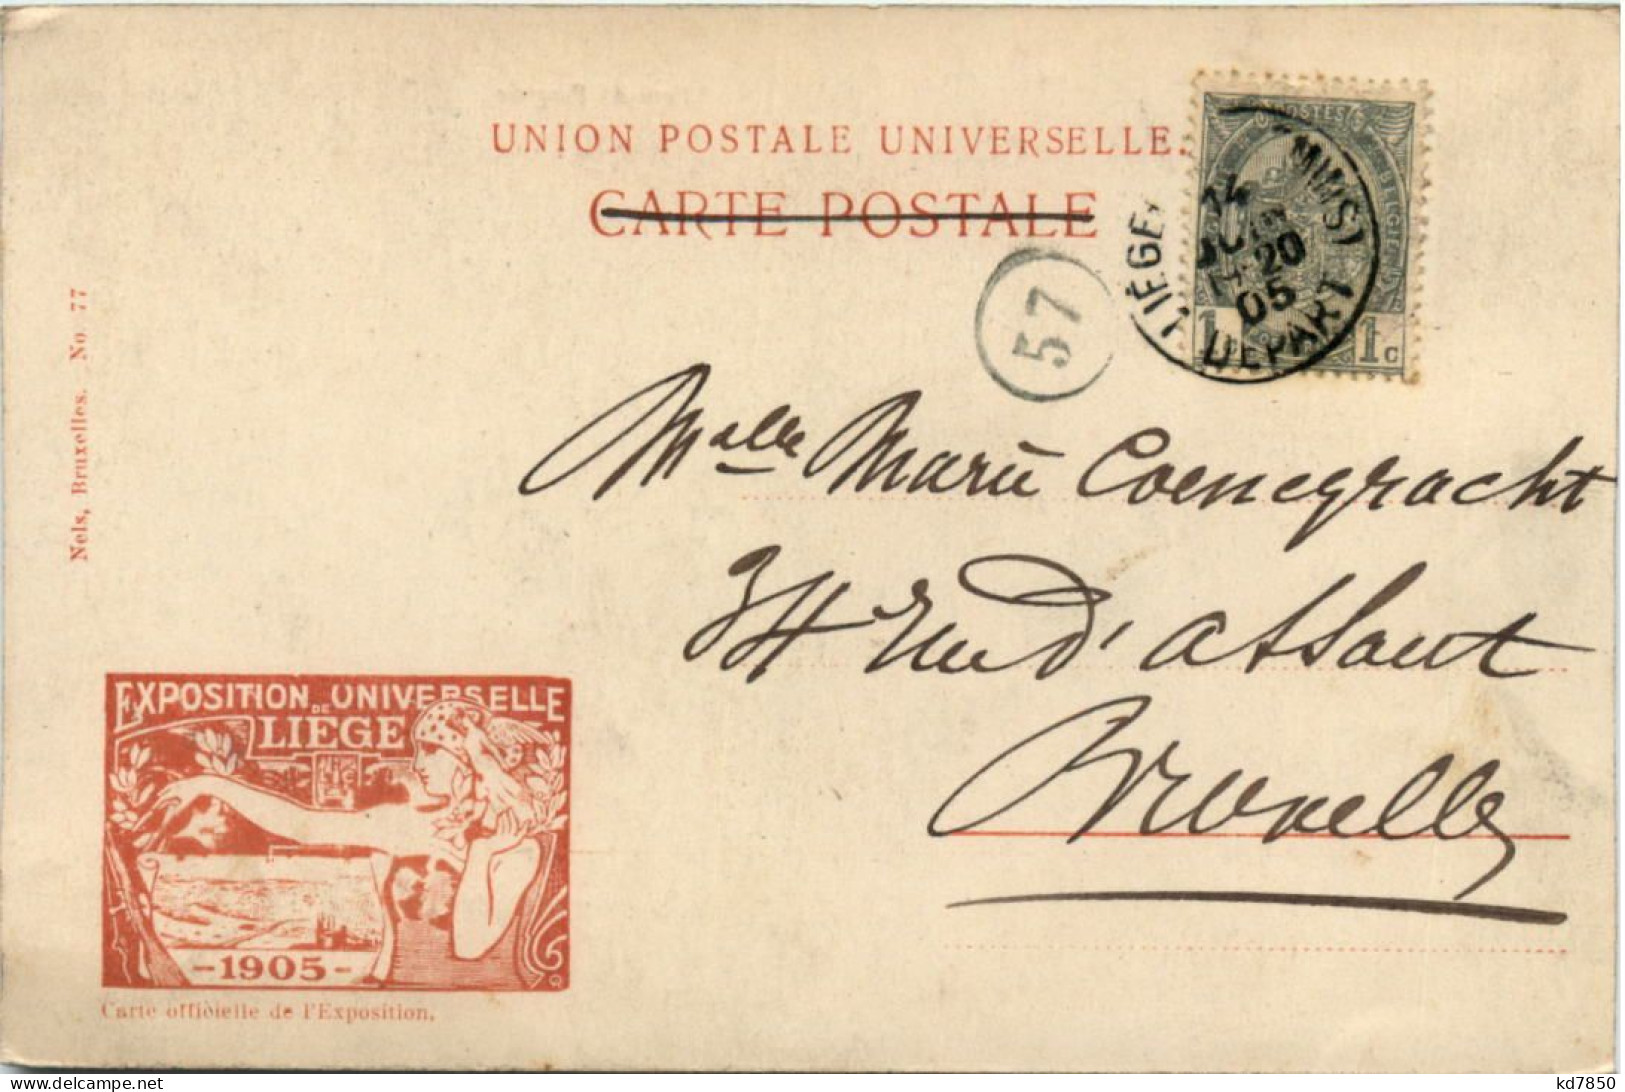 UNION POSTALE UNIVERSELLE.
CARTE POSTALE
POSTES
BELGIE
1 1c
LIÉGE
14
JUIN
20
05
DÉPART
57
Nels, Bruxelles. No. 77
Melle Marie Coenegracht
34 Rue d'assaut
Bruxelles
EXPOSITION UNIVERSELLE
DE
LIÉGE
-1905-
Carte officielle de l'Exposition.
kd7850